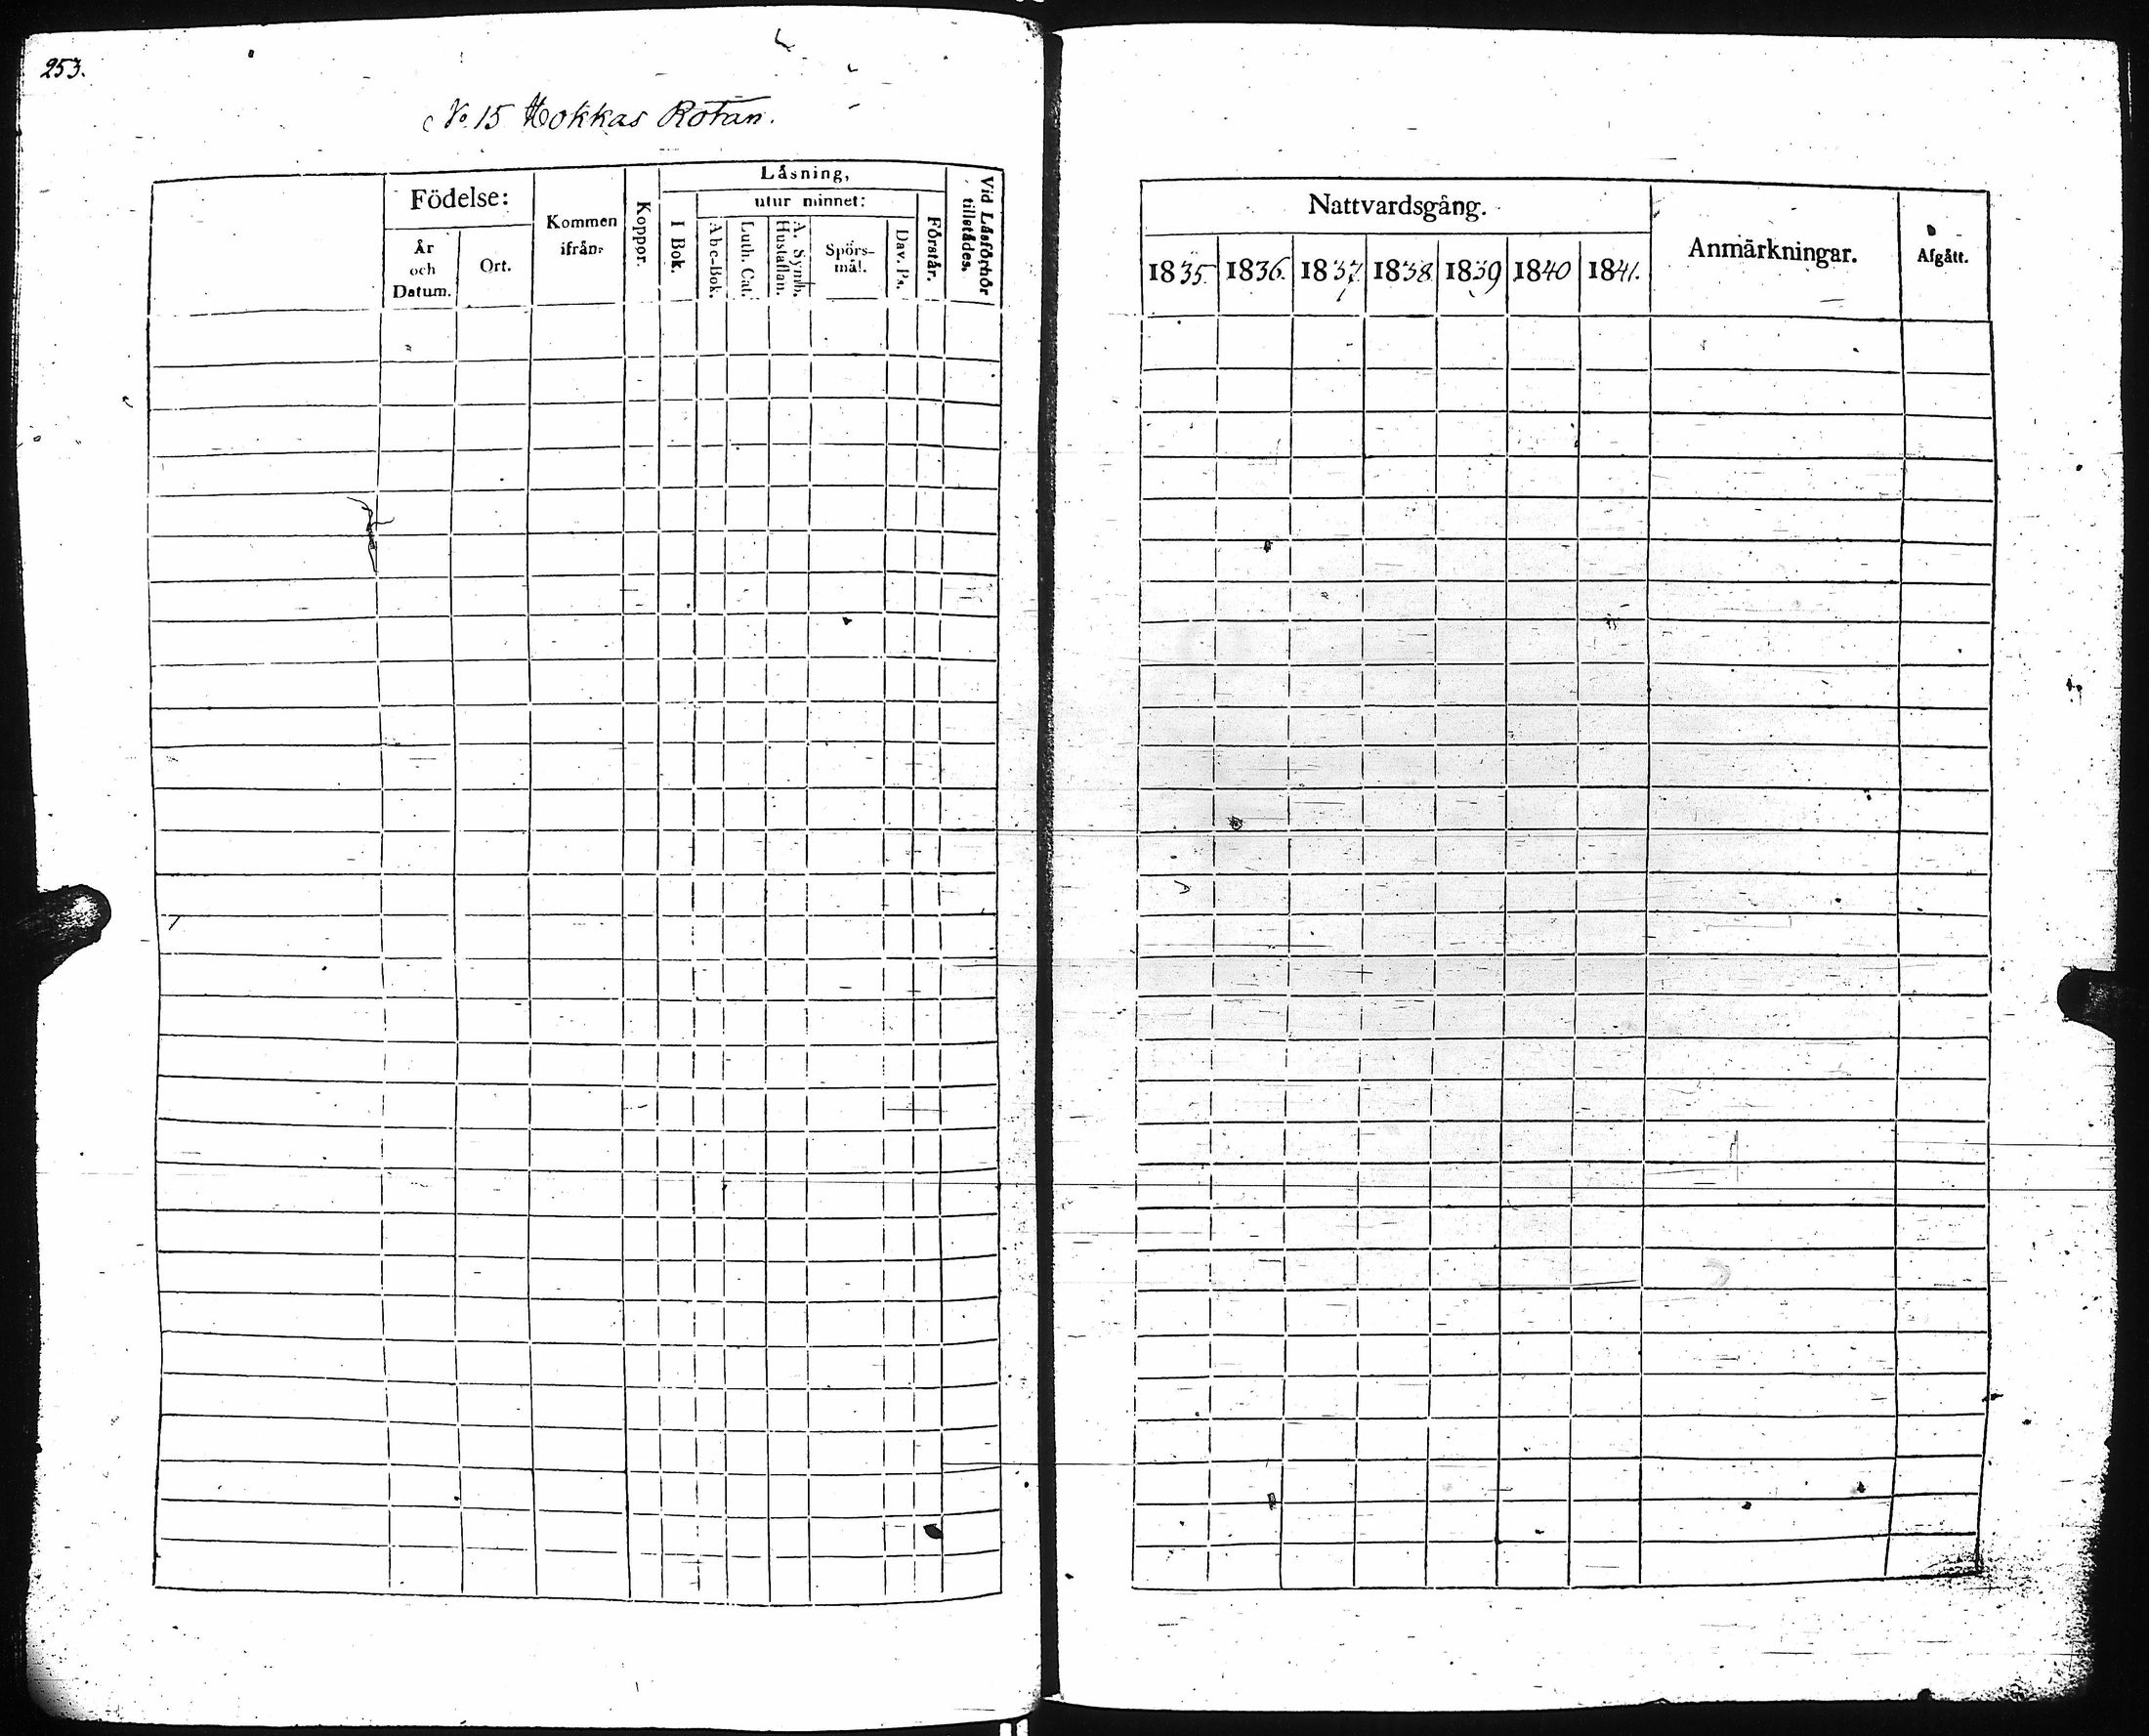 253.
No. 15 Hokkas Rotan.
Födelse:
År och Datum.
Ort.
Kommen ifrån:
Koppor.
Låsning,
I Bok.
utur minnet:
Abc-Bok.
Luth. Cat.
A. Symb. Hustaflan.
Spörs-
mål.
Dav. Ps.
Förstår.
Vid Låsförhör tillstädes.
Nattvardsgång.
1835. 1836. 1837. 1838. 1839 1840 1841.
Anmärkningar.
Afgått.